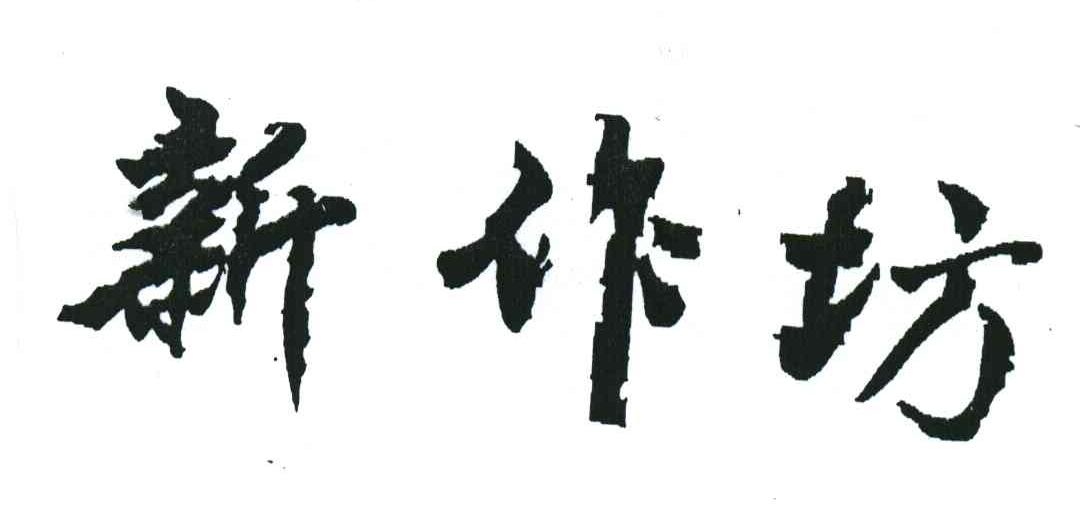 新作坊